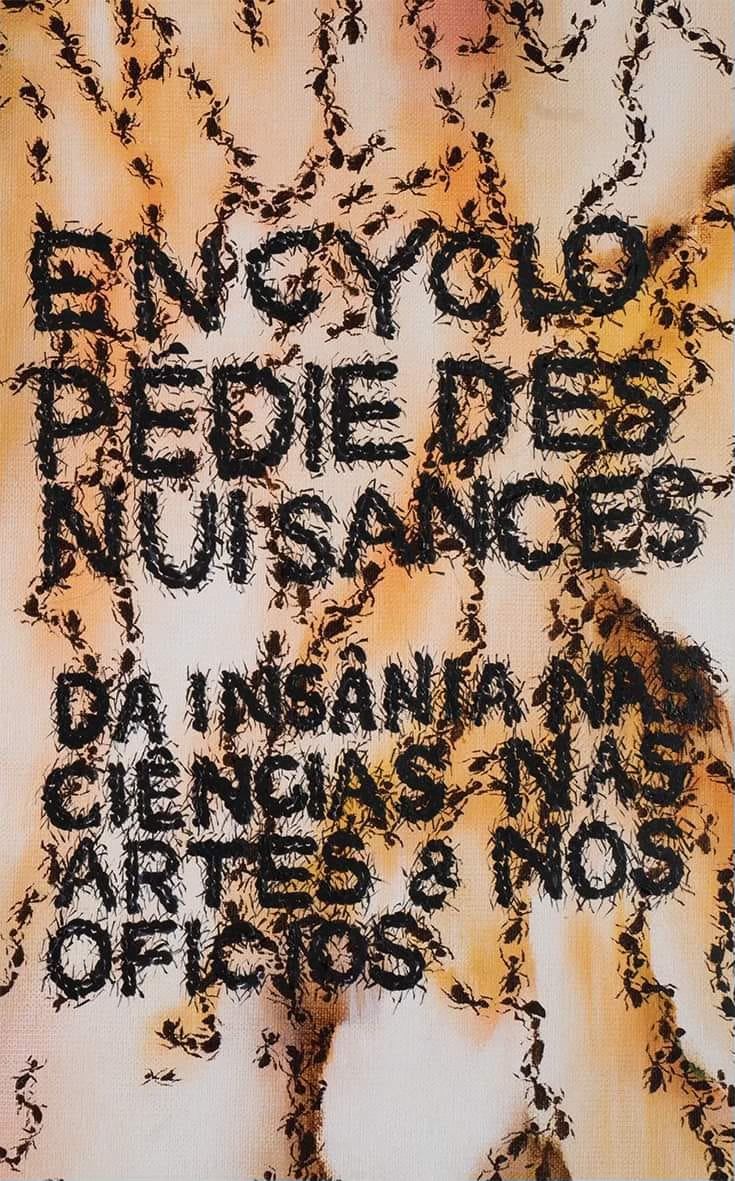 ENCYCLO
PÉDIE DES
NUISANCES
DA INSÂNIA NAS
CIÊNCIAS NAS
ARTES & NOS
OFICIOS